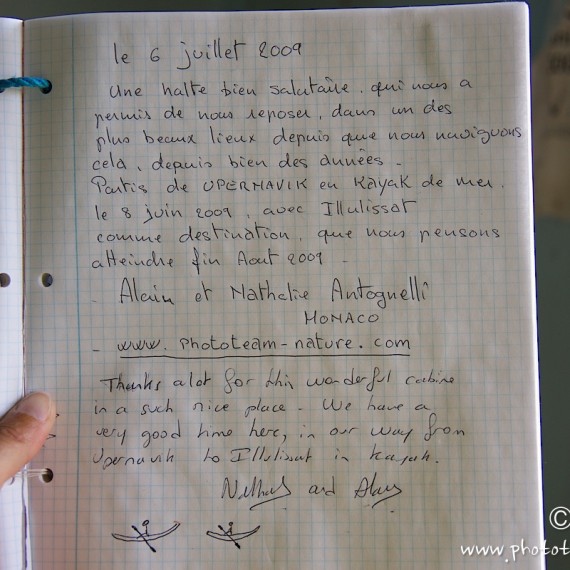 le 6 juillet 2009
Une halte bien salutaire, qui nous a
permis de nous reposer, dans un des
plus beaux lieux depuis que nous naviguons
cela, depuis bien des années -
Partis de UPERNAVIK en Kayak de mer,
le 8 juin 2009, avec Illulissat
comme destination, que nous pensons
atteindre fin Aout 2009 -
- Alain et Nathalie Antognelli
MONACO
- www.phototeam-nature.com
Thanks a lot for this wonderful cabine
in a such nice place - We have a
very good time here, in our way from
Upernavik to Illulissat in Kayak.
and
©
www.photot